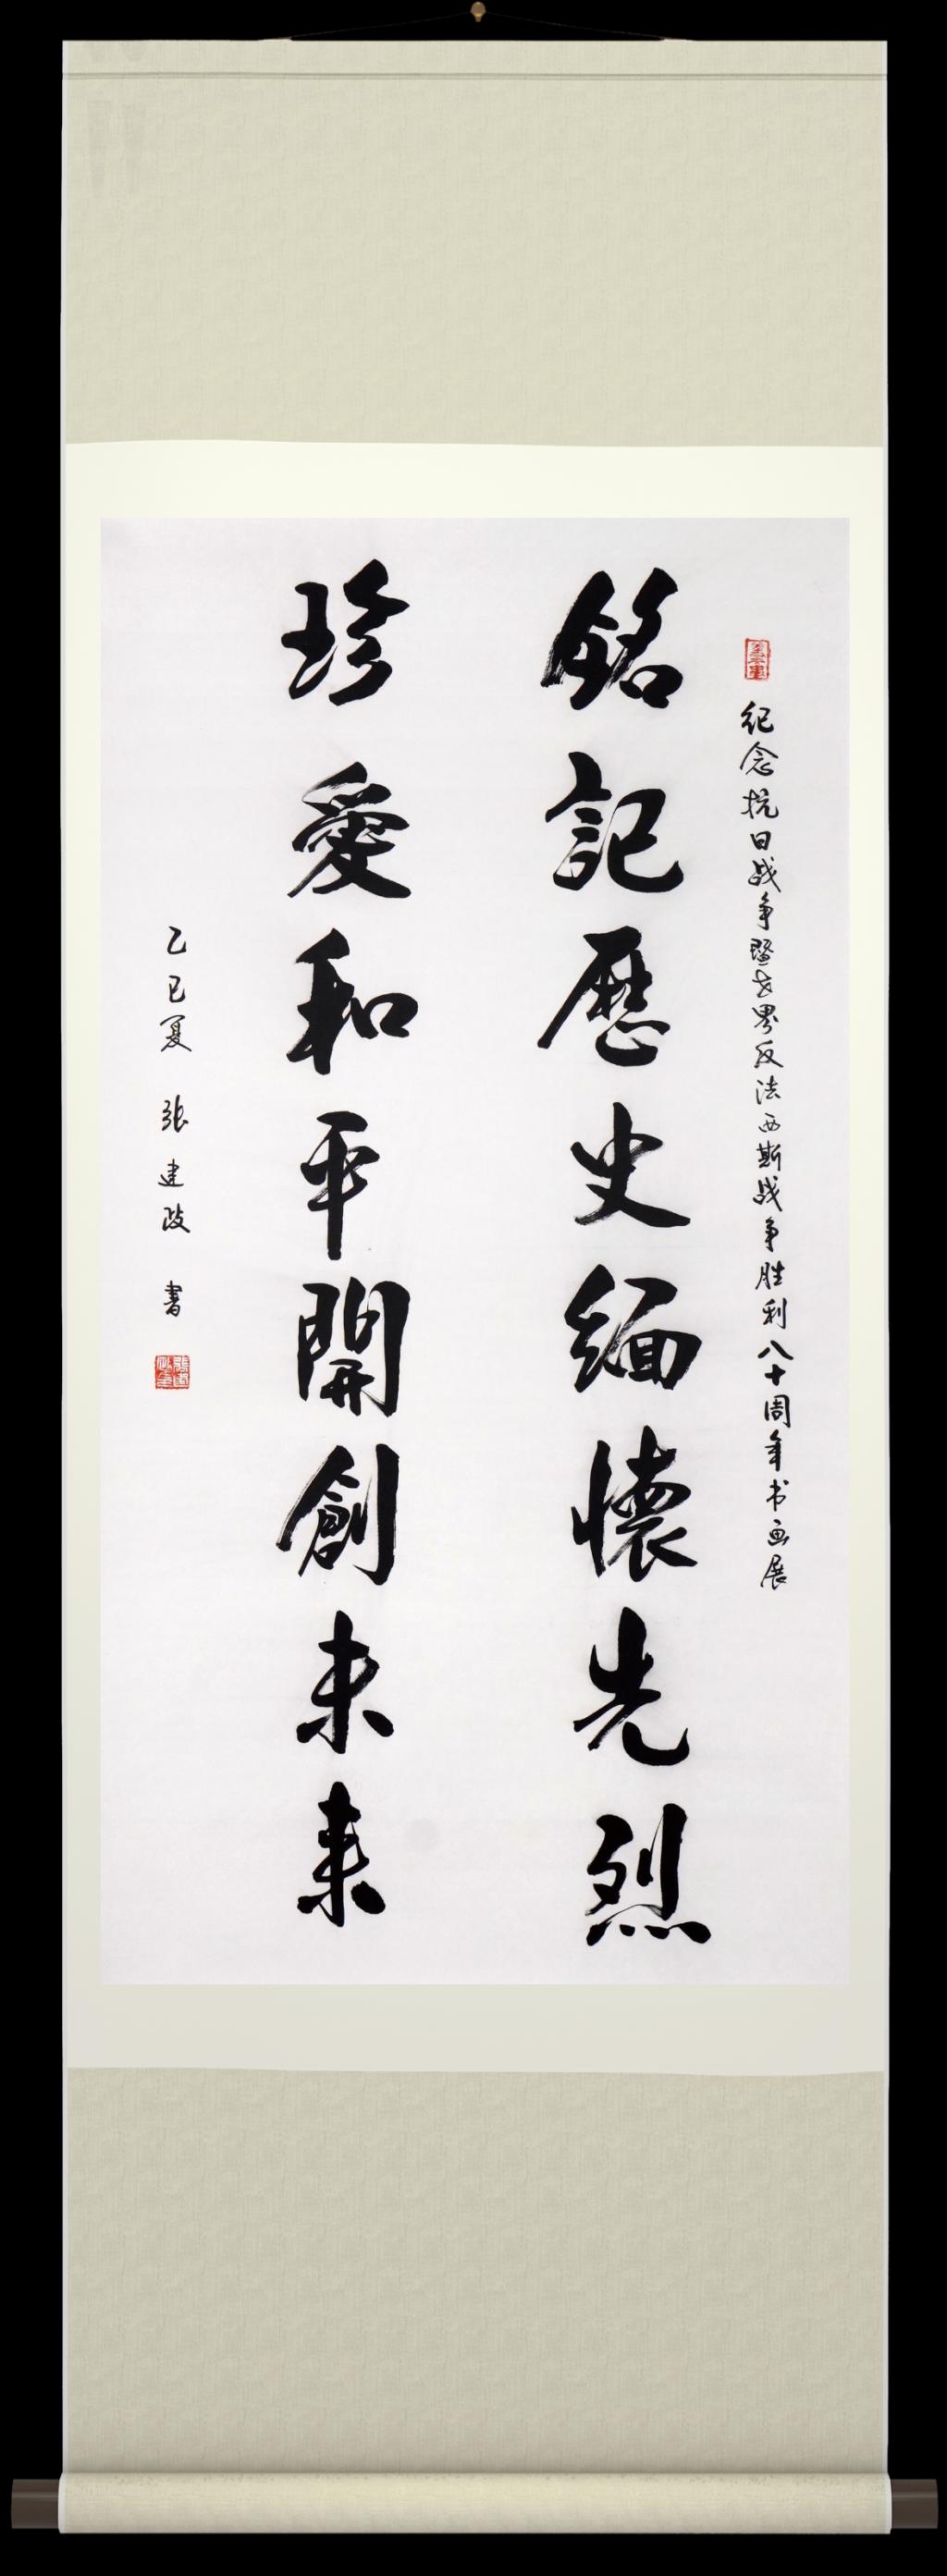 纪念抗日战争暨世界反法西斯战争胜利八十周年书画展
銘記歷史缅懷先烈
珍愛和平開創未来
乙巳夏 張建政 書